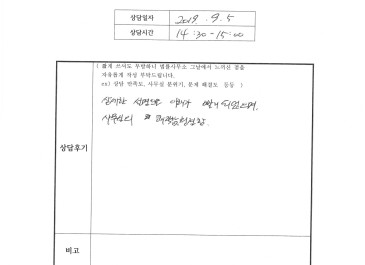 상담일자 2019. 9. 5
상담시간 14:30-15:00
( 짧게 쓰셔도 무방하니 법률사무소 그날에서 느끼신 점을
자유롭게 작성 부탁드립니다.
ex) 상담 만족도, 사무실 분위기, 문제 해결도 등등 )
상담후기
친절한 설명으로 이해가 빨리 되었으며,
사무실의
비고